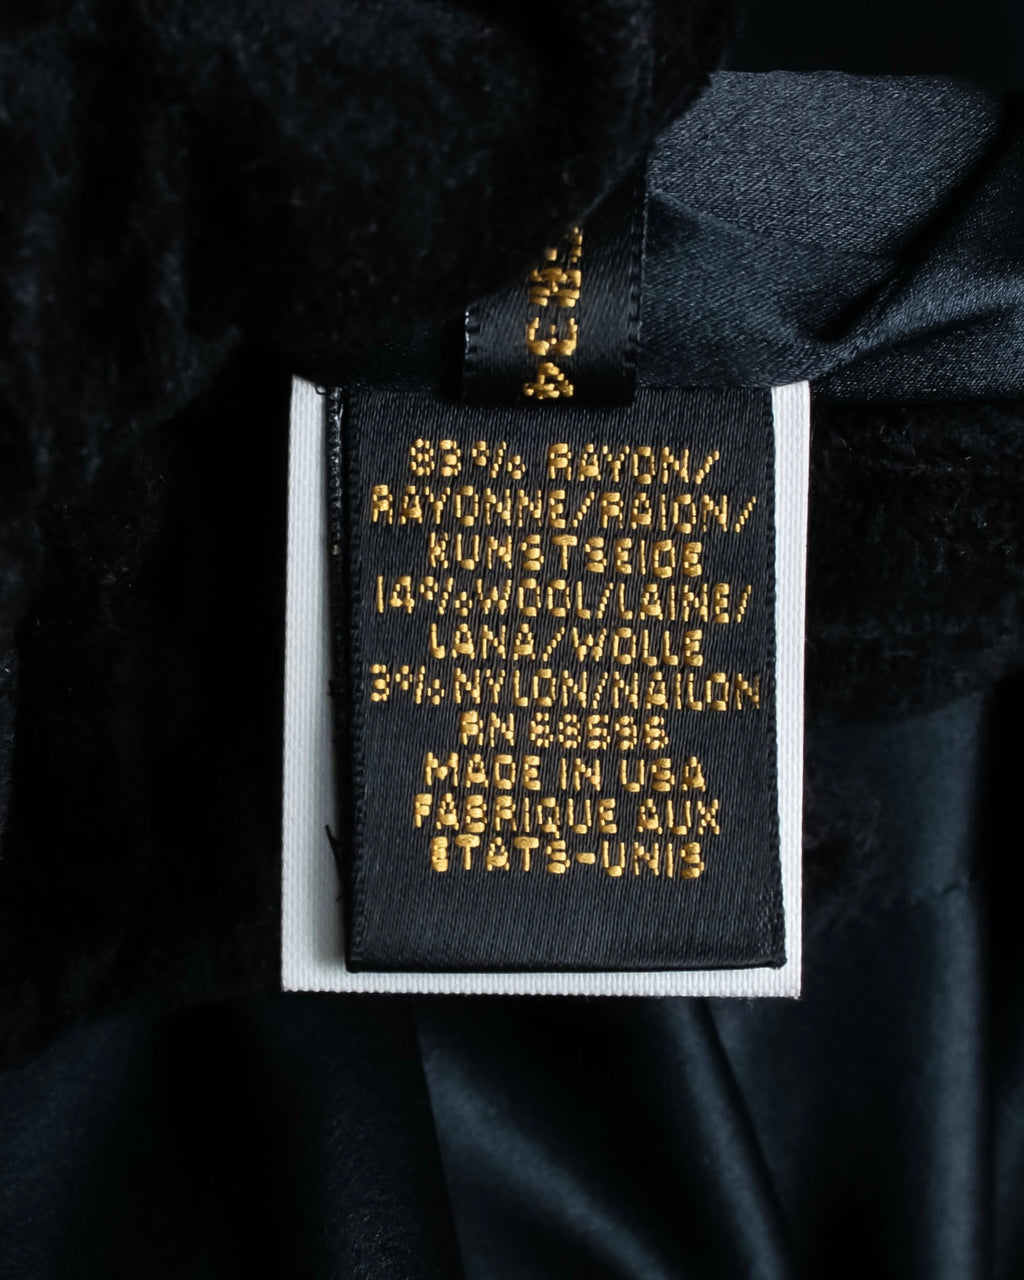 83% RAYON/
RAYONNE/RAION/
KUNSTSEIDE
14% WOOL/LAINE/
LANA/WOLLE
3% NYLON/NAILON
RN
MADE IN USA
FABRIQUE AUX
ETATS-UNIS